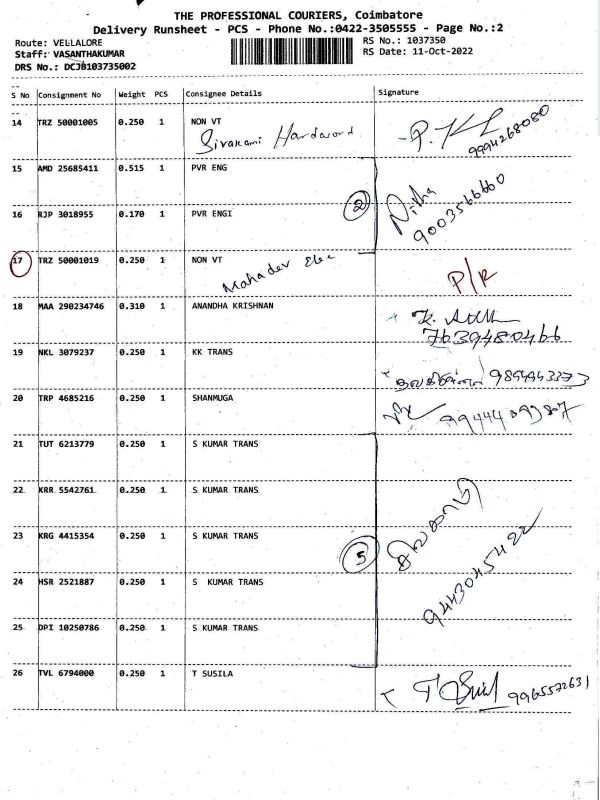 THE PROFESSIONAL COURIERS, Coimbatore
Delivery Runsheet - PCS - Phone No.:0422-3505555 - Page No.:2
Route: VELLALORE
RS No.: 1037350
Staff: VASANTHAKUMAR
RS Date: 11-Oct-2022
DRS No.: DCJB103735002
S No Consignment No Weight PCS Consignee Details Signature
14 TRZ 50001005 0.250 1 NON VT
Sivakami Hardword
9994268080
15 AMD 25685411 0.515 1 PVR ENG
2
Nitha
9003566660
16 RJP 3018955 0.170 1 PVR ENGI
17 TRZ 50001019 0.250 1 NON VT
Mahadev Elec
P/R
18 MAA 290234746 0.310 1 ANANDHA KRISHNAN
7639480466
19 NKL 3079237 0.250 1 KK TRANS
20 TRP 4685216 0.250 1 SHANMUGA
21 TUT 6213779 0.250 1 S KUMAR TRANS
22 KRR 5542761 0.250 1 S KUMAR TRANS
23 KRG 4415354 0.250 1 S KUMAR TRANS
5
9443045422
24 HSR 2521887 0.250 1 S KUMAR TRANS
25 DPI 10250786 0.250 1 S KUMAR TRANS
26 TVL 6794000 0.250 1 T SUSILA
9965572631